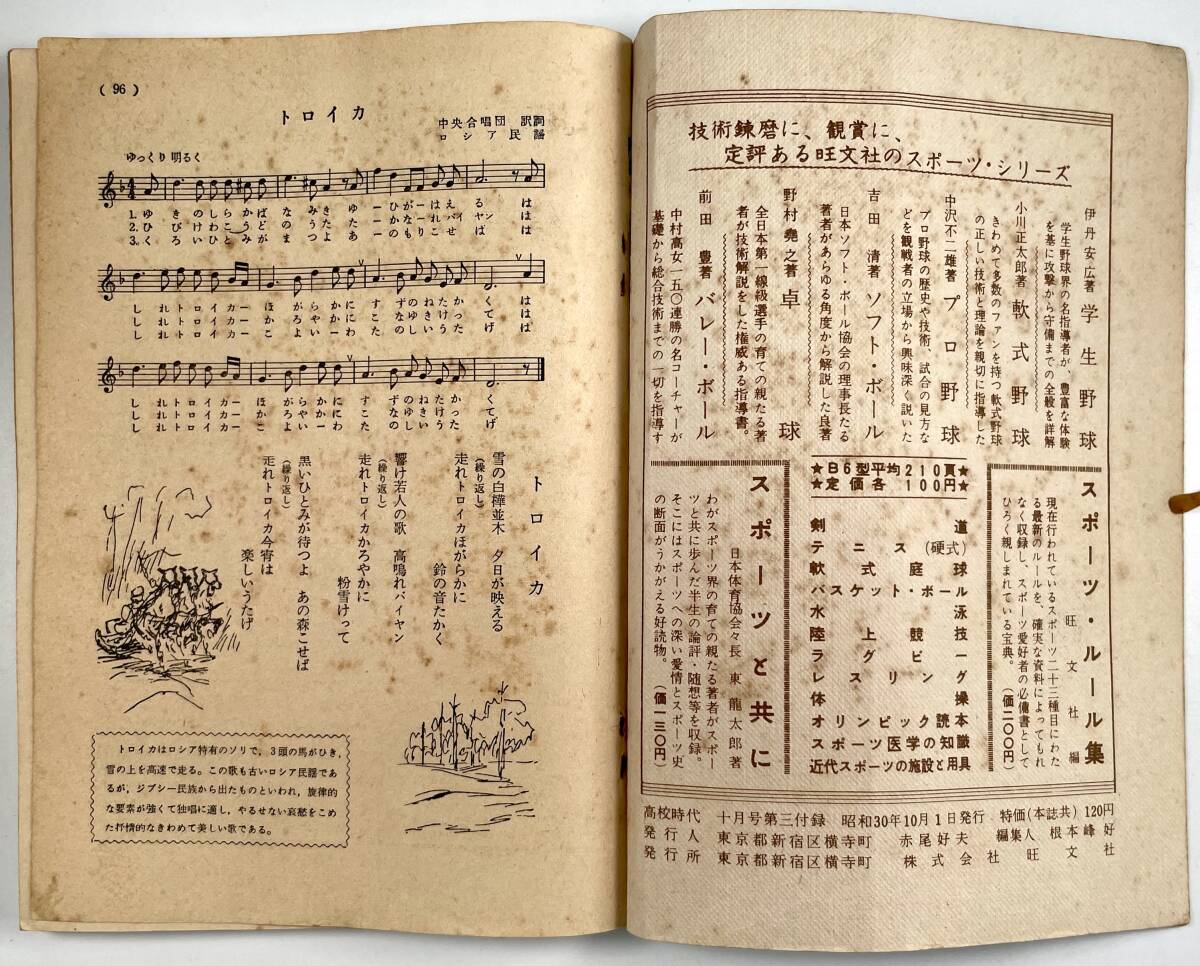 ( 96 )
トロイカ
中央合唱団 訳詞
ロシア民謡
ゆっくり 明るく
1. ゆきのしらかば なみき ゆーひがーはえ るは
2. ひびけわこうどの うたた ーかなーれバイ ヤンは
3. くろいひとみが まつよ あーのもりこせ ばは
しれトロイカー ほがらかに すずのねたか くては
しれトロイカー かろやかに こなゆきけっ
しれトロイカー こよいーわ たのしいうた げ
しれトロイカー ほがらかに すずのねたかくて
しれトロイカー かろやかに こなゆきけって
しれトロイカー こよいーわ たのしいうたげ
トロイカ
雪の白樺並木 夕日が映える
走れトロイカほがらかに
鈴の音たかく
(繰り返し)
響け若人の歌 高鳴れバイヤン
走れトロイカかろやかに
粉雪けって
(繰り返し)
黒いひとみが待つよ あの森こせば
走れトロイカ今宵は
楽しいうたげ
(繰り返し)
トロイカはロシア特有のソリで、3頭の馬がひき、
雪の上を高速で走る。この歌も古いロシア民謡であ
るが、ジプシー民族から出たものといわれ、旋律的
な要素が強くて独唱に適し、やるせない哀愁をこめ
た抒情的なきわめて美しい歌である。
技術錬磨に、観賞に、
定評ある旺文社のスポーツ・シリーズ
伊丹安広著 学生野球
学生野球界の名指導者が、豊富な体験
を基に攻撃から守備までの全般を詳解
小川正太郎著 軟式野球
きわめて多数のファンを持つ軟式野球
の正しい技術と理論を親切に指導した
中沢不二雄著 プロ野球
プロ野球の歴史や技術、試合の見方な
どを観戦者の立場から興味深く説いた
吉田 清著 ソフト・ボール
日本ソフト・ボール協会の理事長たる
著者があらゆる角度から解説した良著
野村堯之著 卓球
全日本第一線級選手の育ての親たる著
者が技術解説をした権威ある指導書。
前田 豊著 バレー・ボール
中村高女一五〇連勝の名コーチャーが
基礎から総合技術までの一切を指導す
スポーツ・ルール集
旺文社編
現在行われているスポーツ二十三種目にわた
る最新のルールを、確実な資料によってもれ
なく収録し、スポーツ愛好者の必備書として
ひろく親しまれている宝典。
(価二〇〇円)
★B6型平均210頁★
★定価各 100円★
剣道
テニス(硬式)
軟式庭球
バスケット・ボール
水泳
陸上競技
ラグビー
レスリング
体操
オリンピック読本
スポーツ医学の知識
近代スポーツの施設と用具
スポーツと共に
日本体育協会々長 東 龍太郎著
わがスポーツ界の育ての親たる著者がスポー
ツと共に歩んだ半生の論評・随想等を収録。
そこにはスポーツへの深い愛情とスポーツ史
の断面がうかがえる好読物。
(価一三〇円)
高校時代 十月号第三付録 昭和30年10月1日発行 特価(本誌共)120円
発行人 東京都新宿区横寺町 赤尾好夫 編集人 根本峰好
発行所 東京都新宿区横寺町 株式会社旺文社